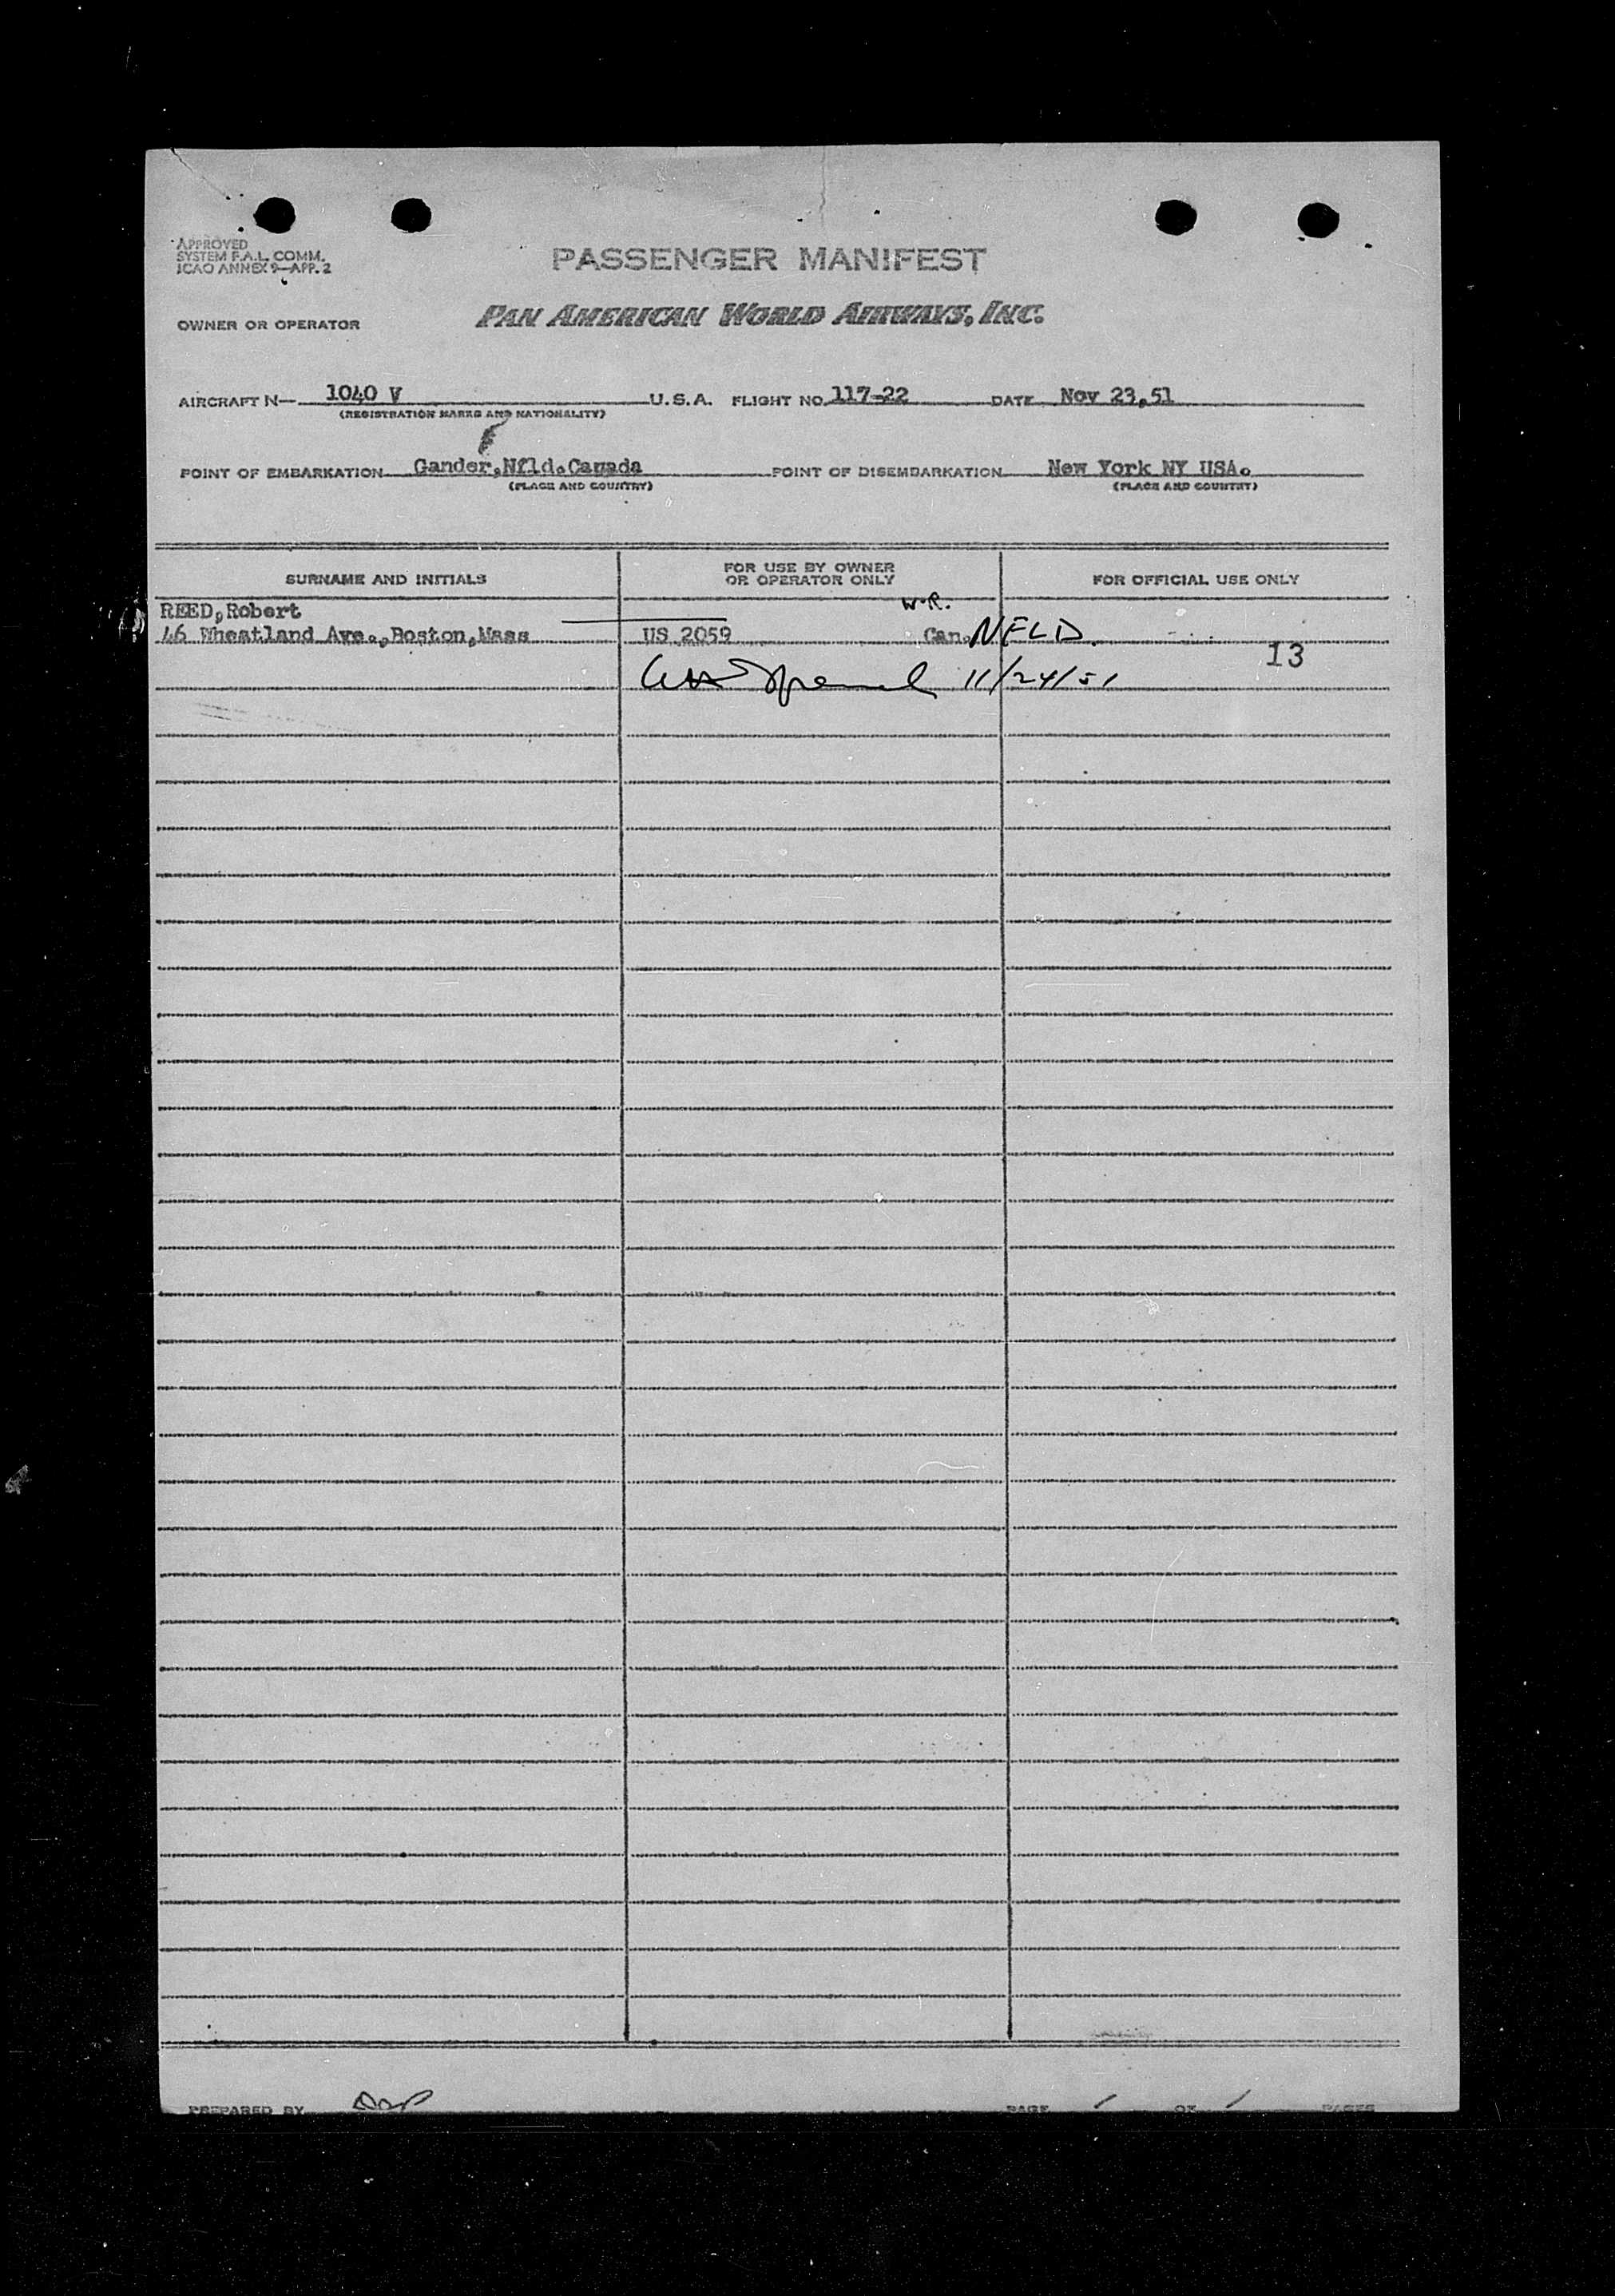 APPROVED
SYSTEM F.A.L. COMM.
ICAO ANNEX 9—APP. 2
PASSENGER MANIFEST
OWNER OR OPERATOR PAN AMERICAN WORLD AIRWAYS, INC.
AIRCRAFT N— 1040 V U.S.A. FLIGHT NO. 117-22 DATE Nov 23,51
(REGISTRATION MARKS AND NATIONALITY)
POINT OF EMBARKATION Gander,Nfld.Canada POINT OF DISEMBARKATION New York NY USA.
(PLACE AND COUNTRY) (PLACE AND COUNTRY)
SURNAME AND INITIALS FOR USE BY OWNER OR OPERATOR ONLY FOR OFFICIAL USE ONLY
W.R.
REED,Robert
46 Wheatland Ave.,Boston,Mass US 2059 Can. NFLD
13
11/24/51
PREPARED BY PAGE 1 OF 1 PAGES